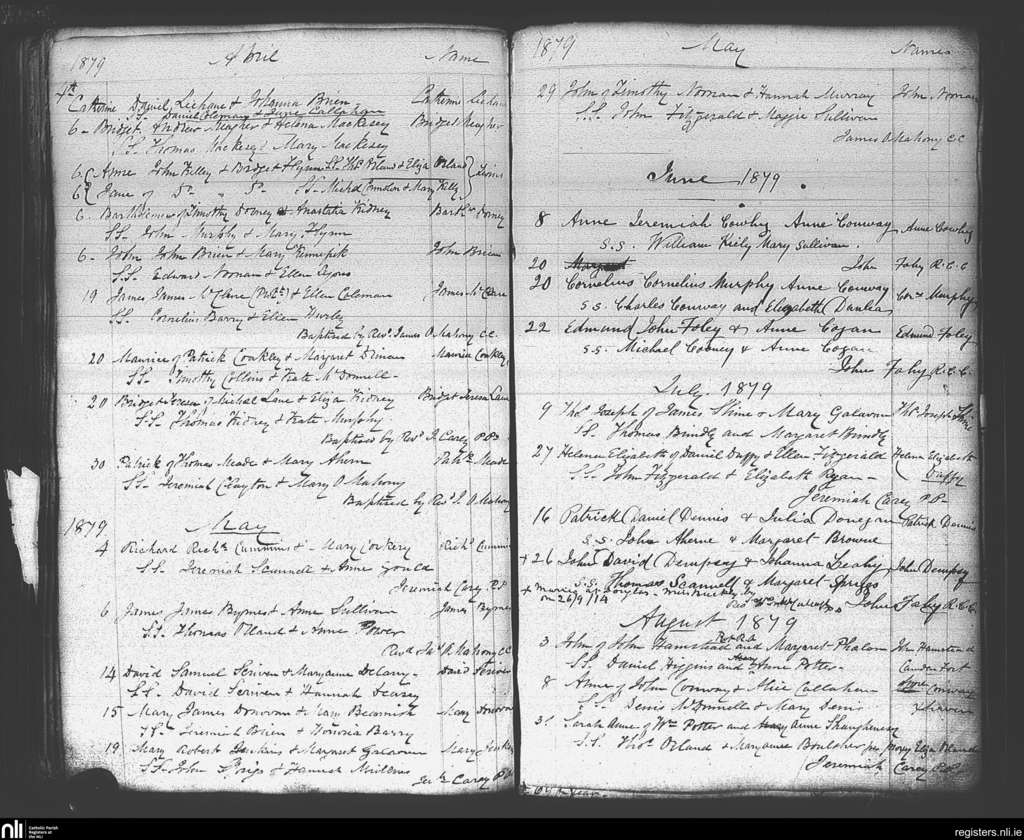 1879 April Name
4th Catherine Daniel Leehane & Johanna Brien Catherine Leehane
S.S. Daniel Coleman &
6 Bridget Andrew Meagher & Helena Mackesey Bridget Meagher
S.S. Thomas Mackesey & Mary Mackesey
6 Annie John Kelly & Bridget Flynn S.S. Thos Orland & Eliza Orland
6 Jane of Do " Do S.S. Michl & Mary Kelly
Twins
6. Bartholomew of Timothy Dorney & Anastatia Kidney Barthw Dorney
S.S. John Murphy & Mary Flynn
6 John John Brien & Mary John Brien
S.S. Edward Noonan & Ellen Lyons
19 James James McClare & Ellen Coleman James McClare
S.S. Cornelius Barry & Ellen Hurley
Baptised by Revd James O Mahony CC.
20 Maurice of Patrick Coakley & Margaret Maurice Coakley
S.S. Timothy Collins & Kate McDonnell
20 Bridget Teresa of Michael Lane & Eliza Kidney Bridget Teresa Lane
S.S. Thomas Kidney & Kate Murphy
Baptised by Revd J. Carey P.P.
30 Patrick of Thomas Meade & Mary Ahern Patk Meade
S.S. Jeremiah Clayton & Mary O Mahony
Baptised by Revd J. O Mahony
1879 May
4 Richard Richd Cummins & Mary Corkery Richd Cummins
S.S. Jeremiah Scannell & Anne Gould
Jeremiah Carey P.P.
6 James James Byrnes & Anne Sullivan James Byrnes
S.S. Thomas Orland & Anne Power
Revd Jas O Mahony CC
14 David Samuel Scriven & Maryanne Delany David Scriven
S.S. David Scriven & Hannah Deasey
15 Mary James Donovan & Mary Beamish Mary Donovan
S.S. Jeremiah Brien & Honoria Barry
19 Mary Robert Jenkins & Margaret Galavan Mary Jenkins
S.S. John Spriggs & Hannah Mullins
Jerh Carey P.P.
1879 May Names
29 John of Timothy Noonan & Hannah Murray John Noonan
S.S. John Fitzgerald & Maggie Sullivan
James O Mahony CC
June 1879
8 Anne Jeremiah Cowhy Anne Conway Anne Cowhy
S.S. William Kiely Mary Sullivan.
20 John Foley R.C.C
20 Cornelius Cornelius Murphy Anne Conway Cors Murphy
S.S. Charles Conway and Elizabeth Dunlea
22 Edmund John Foley & Anne Cogan Edmund Foley
S.S. Michael Cooney & Anne Cogan
John Foley R.C.C.
July 1879
9 Thos Joseph of James Shine & Mary Galavan Thos Joseph Shine
S.S. Thomas Brindly and Margaret Brindly
27 Helena Elizabeth of Daniel Duffy & Ellen Fitzgerald Helena Elizabeth
S.S. John Fitzgerald & Elizabeth Ryan Duffy
Jeremiah Carey P.P.
16 Patrick Daniel Dennis & Julia Donegan Patrick Dennis
S.S. John Aherne & Margaret Browne
+ 26 John David Dempsey & Johanna Leahy John Dempsey
S.S. Thomas Scannell & Margaret Spriggs
+ Married at by
on 26/9/14 John Foley R.C.C
August 1879
3 John of John Hamstead and Margaret Phalan John Hamstead
S.S. Daniel Higgins and Anne Potter Camden Fort
8 Anne of John Conway & Alice Callahan Anne Conway
S.S. Denis McDonnell & Mary Denis
31 Sarah Anne of Wm Potter and Anne Shaughnessy
S.S. Thos Orland & Maryanne Boulcher per proxy Eliza Orland
Jeremiah Carey P.P.
nli
Catholic Parish
Registers at
the NLI
registers.nli.ie